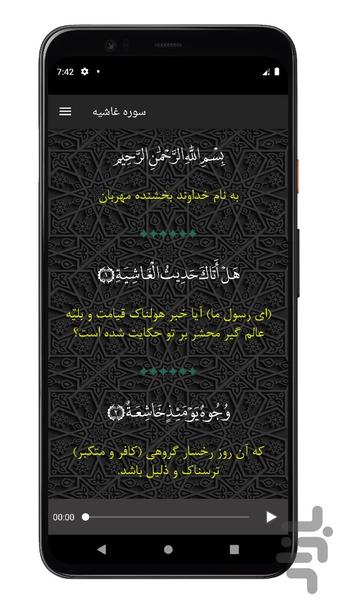 7:42
سوره غاشیه
بِسْمِ اللَّهِ الرَّحْمَٰنِ الرَّحِيمِ
به نام خداوند بخشنده مهربان
هَلْ أَتَاكَ حَدِيثُ الْغَاشِيَةِ ﴿١﴾
(ای رسول ما) آیا خبر هولناک قیامت و بلیّه
عالم گیر محشر بر تو حکایت شده است؟
وُجُوهٌ يَوْمَئِذٍ خَاشِعَةٌ ﴿٢﴾
که آن روز رخسار گروهی (کافر و متکبر)
ترسناک و ذلیل باشد.
00:00
بازار